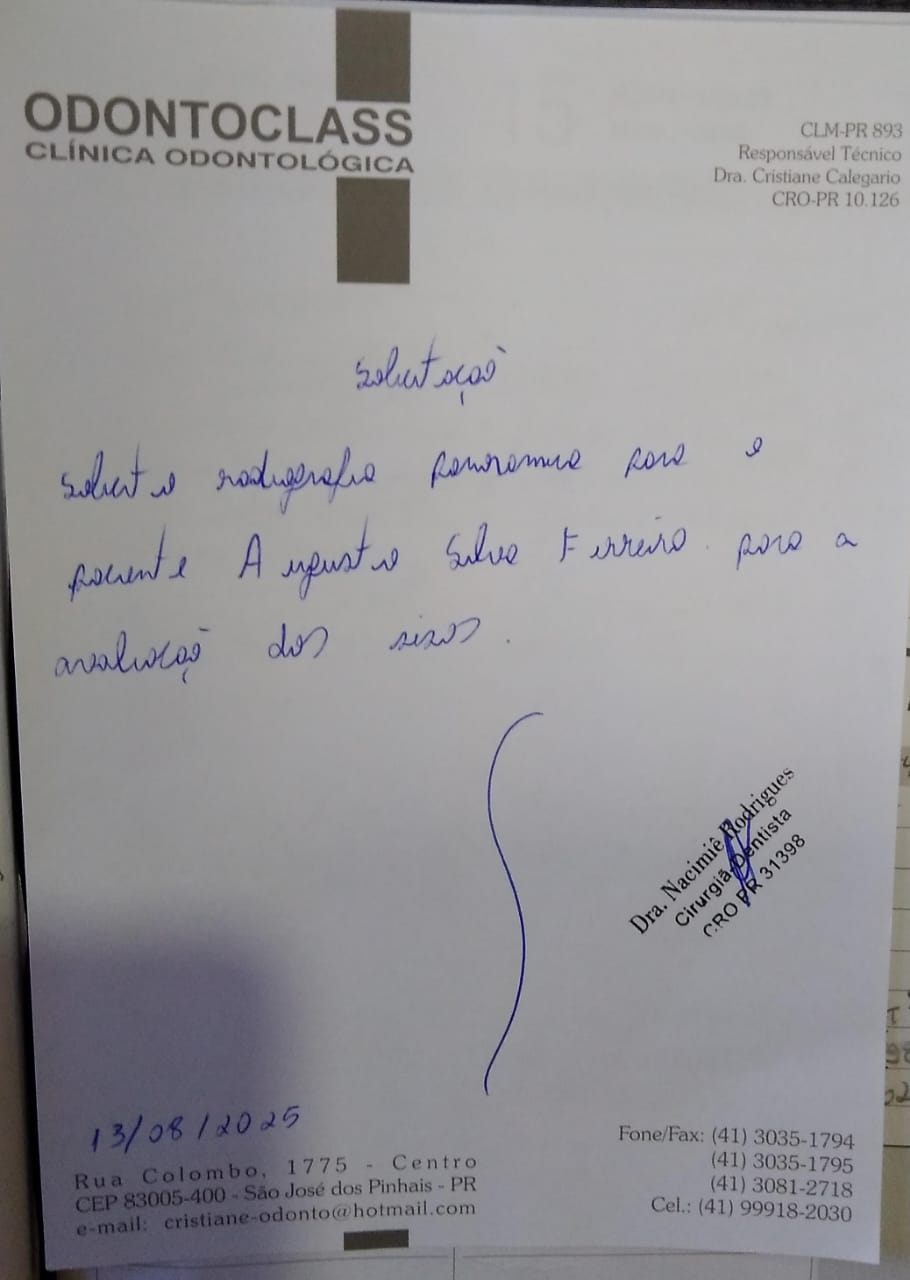 ODONTOCLASS
CLÍNICA ODONTOLÓGICA
CLM-PR 893
Responsável Técnico
Dra. Cristiane Calegario
CRO-PR 10.126
Solicitação
Solicito radiografia panoramica para o
paciente Augusto Silva Ferreira para a
avaliação dos sisos.
Dra. Nacimiê Rodrigues
Cirurgiã-Dentista
CRO PR 31398
13/08/2025
Rua Colombo, 1775 - Centro
CEP 83005-400 - São José dos Pinhais - PR
e-mail: cristiane-odonto@hotmail.com
Fone/Fax: (41) 3035-1794
(41) 3035-1795
(41) 3081-2718
Cel.: (41) 99918-2030